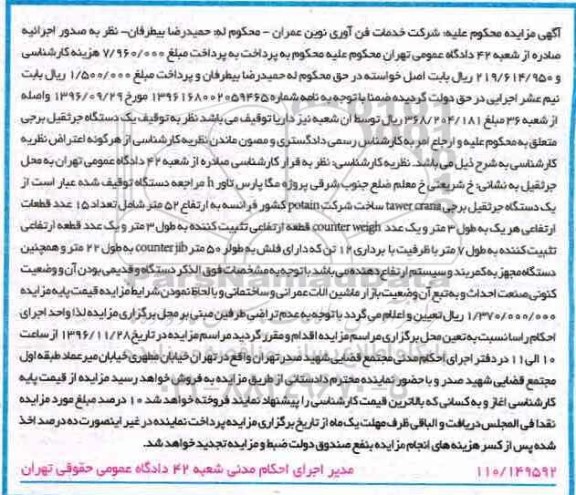 آگهی مزایده محکوم علیه: شرکت خدمات فن آوری نوین عمران - محکوم له: حمیدرضا بیطرفان- نظر به صدور اجرائیه
صادره از شعبه ۴۲ دادگاه عمومی تهران محکوم علیه محکوم به پرداخت به پرداخت مبلغ ۷/۹۶۰/۰۰۰ هزینه کارشناسی
و ۲۱۹/۶۱۴/۹۵۰ ریال بابت اصل خواسته در حق محکوم له حمیدرضا بیطرفان و پرداخت مبلغ ۱/۵۰۰/۰۰۰ ریال بابت
نیم عشر اجرایی در حق دولت گردیده ضمنا با توجه به نامه شماره ۱۳۹۶۱۶۸۰۰۲۰۵۹۴۶۵ مورخ ۱۳۹۶/۰۹/۲۹ واصله
از شعبه ۳۶ مبلغ ۳۶۸/۲۰۴/۱۸۱ ریال توسط آن شعبه نیز داریا توقیف می باشد نظر به توقیف یک دستگاه جرثقیل برجی
متعلق به محکوم علیه و ارجاع امر به کارشناس رسمی دادگستری و مصون ماندن نظریه کارشناسی از هرگونه اعتراض نظریه
کارشناسی به شرح ذیل می باشد. نظریه کارشناسی: نظر به قرار کارشناسی صادره از شعبه ۴۲ دادگاه عمومی تهران به محل
جرثقیل به نشانی: خ شریعتی خ معلم ضلع جنوب شرقی پروژه مگا پارس تاور h مراجعه دستگاه توقیف شده عبار است از
یک دستگاه جرثقیل برجی tawer crana ساخت شرکت potain کشور فرانسه به ارتفاع ۵۲ متر شامل تعداد ۱۵ عدد قطعات
ارتفاعی هر یک به طول ۳ متر و یک عدد counter weigh قطعه ارتفاعی تثبیت کننده به طول ۳ متر و یک عدد قطعه ارتفاعی
تثبیت کننده به طول ۷ متر با ظرفیت با برداری ۱۲ تن که دارای فلش به طولر ۵۰ متر counter jib به طول ۲۲ متر و همچنین
دستگاه مجهز به کمربند و سیستم ارتفاع دهنده می باشد با توجه به مشخصات فوق الذکر دستگاه و قدیمی بودن آن و وضعیت
کنونی صنعت احداث و به تبع آن وضعیت بازار ماشین الات عمرانی و ساختمانی و با لحاظ نمودن شرایط مزایده قیمت پایه مزایده
۱/۳۷۰/۰۰۰/۰۰۰ ریال تعیین و اعلام می گردد با توجه به عدم تراضی طرفین مبنی بر محل برگزاری مزایده لذا واحد اجرای
احکام راسا نسبت به تعین محل برگزاری مراسم مزایده اقدام و مقرر گردید مراسم مزایده در تاریخ ۱۳۹۶/۱۱/۲۸ از ساعت
۱۰ الی ۱۱ در دفتر اجرای احکام مدنی مجتمع قضایی شهید صدر تهران واقع در تهران خیابان مطهری خیابان میرعماد طبقه اول
مجتمع قضایی شهید صدر و با حضور نماینده محترم دادستانی از طریق مزایده به فروش خواهد رسید مزایده از قیمت پایه
کارشناسی اغاز و به کسانی که بالاترین قیمت کارشناسی را پیشنهاد نمایند فروخته خواهد شد ۱۰ درصد مبلغ مورد مزایده
نقدا فی المجلس دریافت و الباقی ظرف مهلت یک ماه از تاریخ برگزاری مزایده پرداخت نماینده در غیر اینصورت ده درصد اخذ
شده پس از کسر هزینه های انجام مزایده بنفع صندوق دولت ضبط و مزایده تجدید خواهد شد.
۱۱۰/۱۴۹۵۹۲ مدیر اجرای احکام مدنی شعبه ۴۲ دادگاه عمومی حقوقی تهران